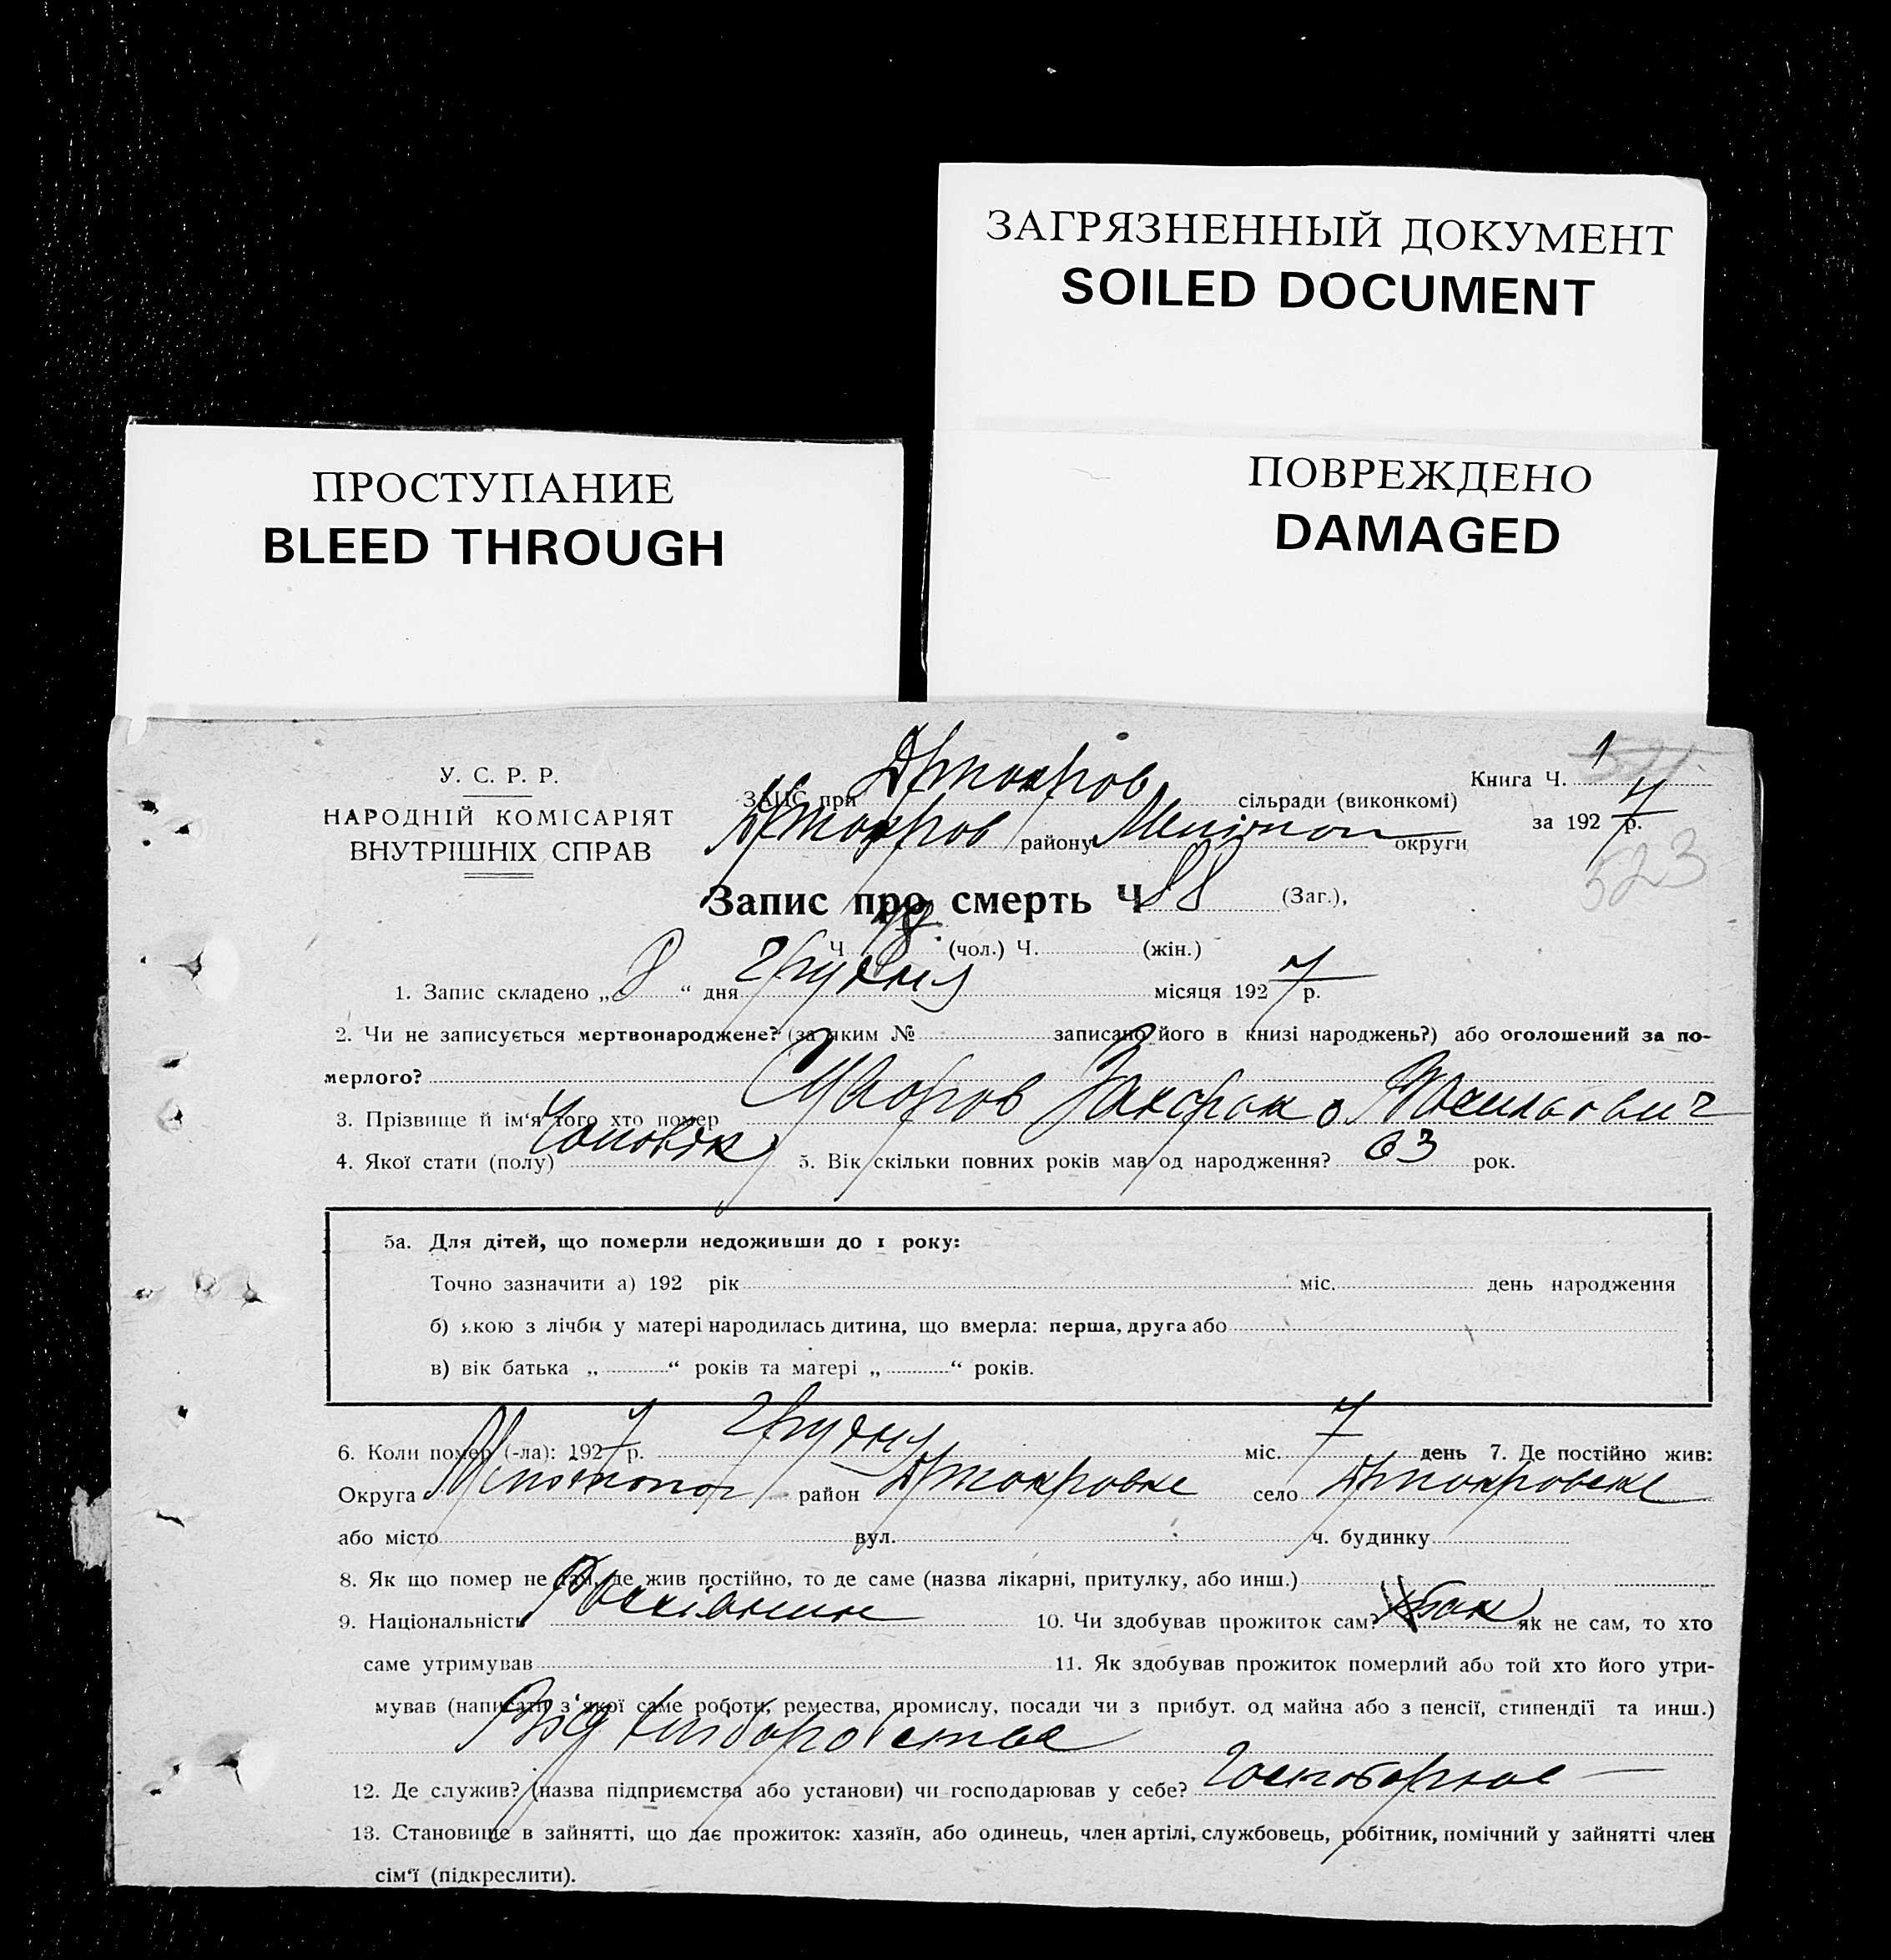 ЗАГРЯЗНЕННЫЙ ДОКУМЕНТ
SOILED DOCUMENT
ПРОСТУПАНИЕ
BLEED THROUGH
ПОВРЕЖДЕНО
DAMAGED
У. С. Р. Р.
НАРОДНІЙ КОМІСАРІЯТ
ВНУТРІШНІХ СПРАВ
ЗАПС при сільради (виконкомі)
району округи
Книга Ч. 1
за 1927 р.
523
Запис про смерть Ч 88 (Заг.),
Ч. (чол.) Ч. (жін.)
1. Запис складено „8“ дня Грудня місяця 1927 р.
2. Чи не записується мертвонароджене? (за яким № записано його в книзі народжень?) або оголошений за по-
мерлого?
3. Прізвище й ім'я того хто помер
4. Якої стати (полу) Чоловік 5. Вік скільки повних років мав од народження? 63 рок.
5а. Для дітей, що померли недоживши до 1 року:
Точно зазначити а) 192 рік міс. день народження
б) якою з лічби у матері народилась дитина, що вмерла: перша, друга або
в) вік батька „ “ років та матері „ “ років.
6. Коли помер (-ла): 1927 р. Грудня міс. 7 день 7. Де постійно жив:
Округа район село
або місто вул. ч. будинку
8. Як що помер не там, де жив постійно, то де саме (назва лікарні, притулку, або инш.)
9. Національність 10. Чи здобував прожиток сам? так як не сам, то хто
саме утримував 11. Як здобував прожиток померлий або той хто його утри-
мував (написати з якої саме роботи, ремества, промислу, посади чи з прибут. од майна або з пенсії, стипендії та инш.)
Від хліборобства
12. Де служив? (назва підприємства або установи) чи господарював у себе?
13. Становище в зайнятті, що дає прожиток: хазяїн, або одинець, член артілі, службовець, робітник, помічний у зайнятті член
сім'ї (підкреслити).